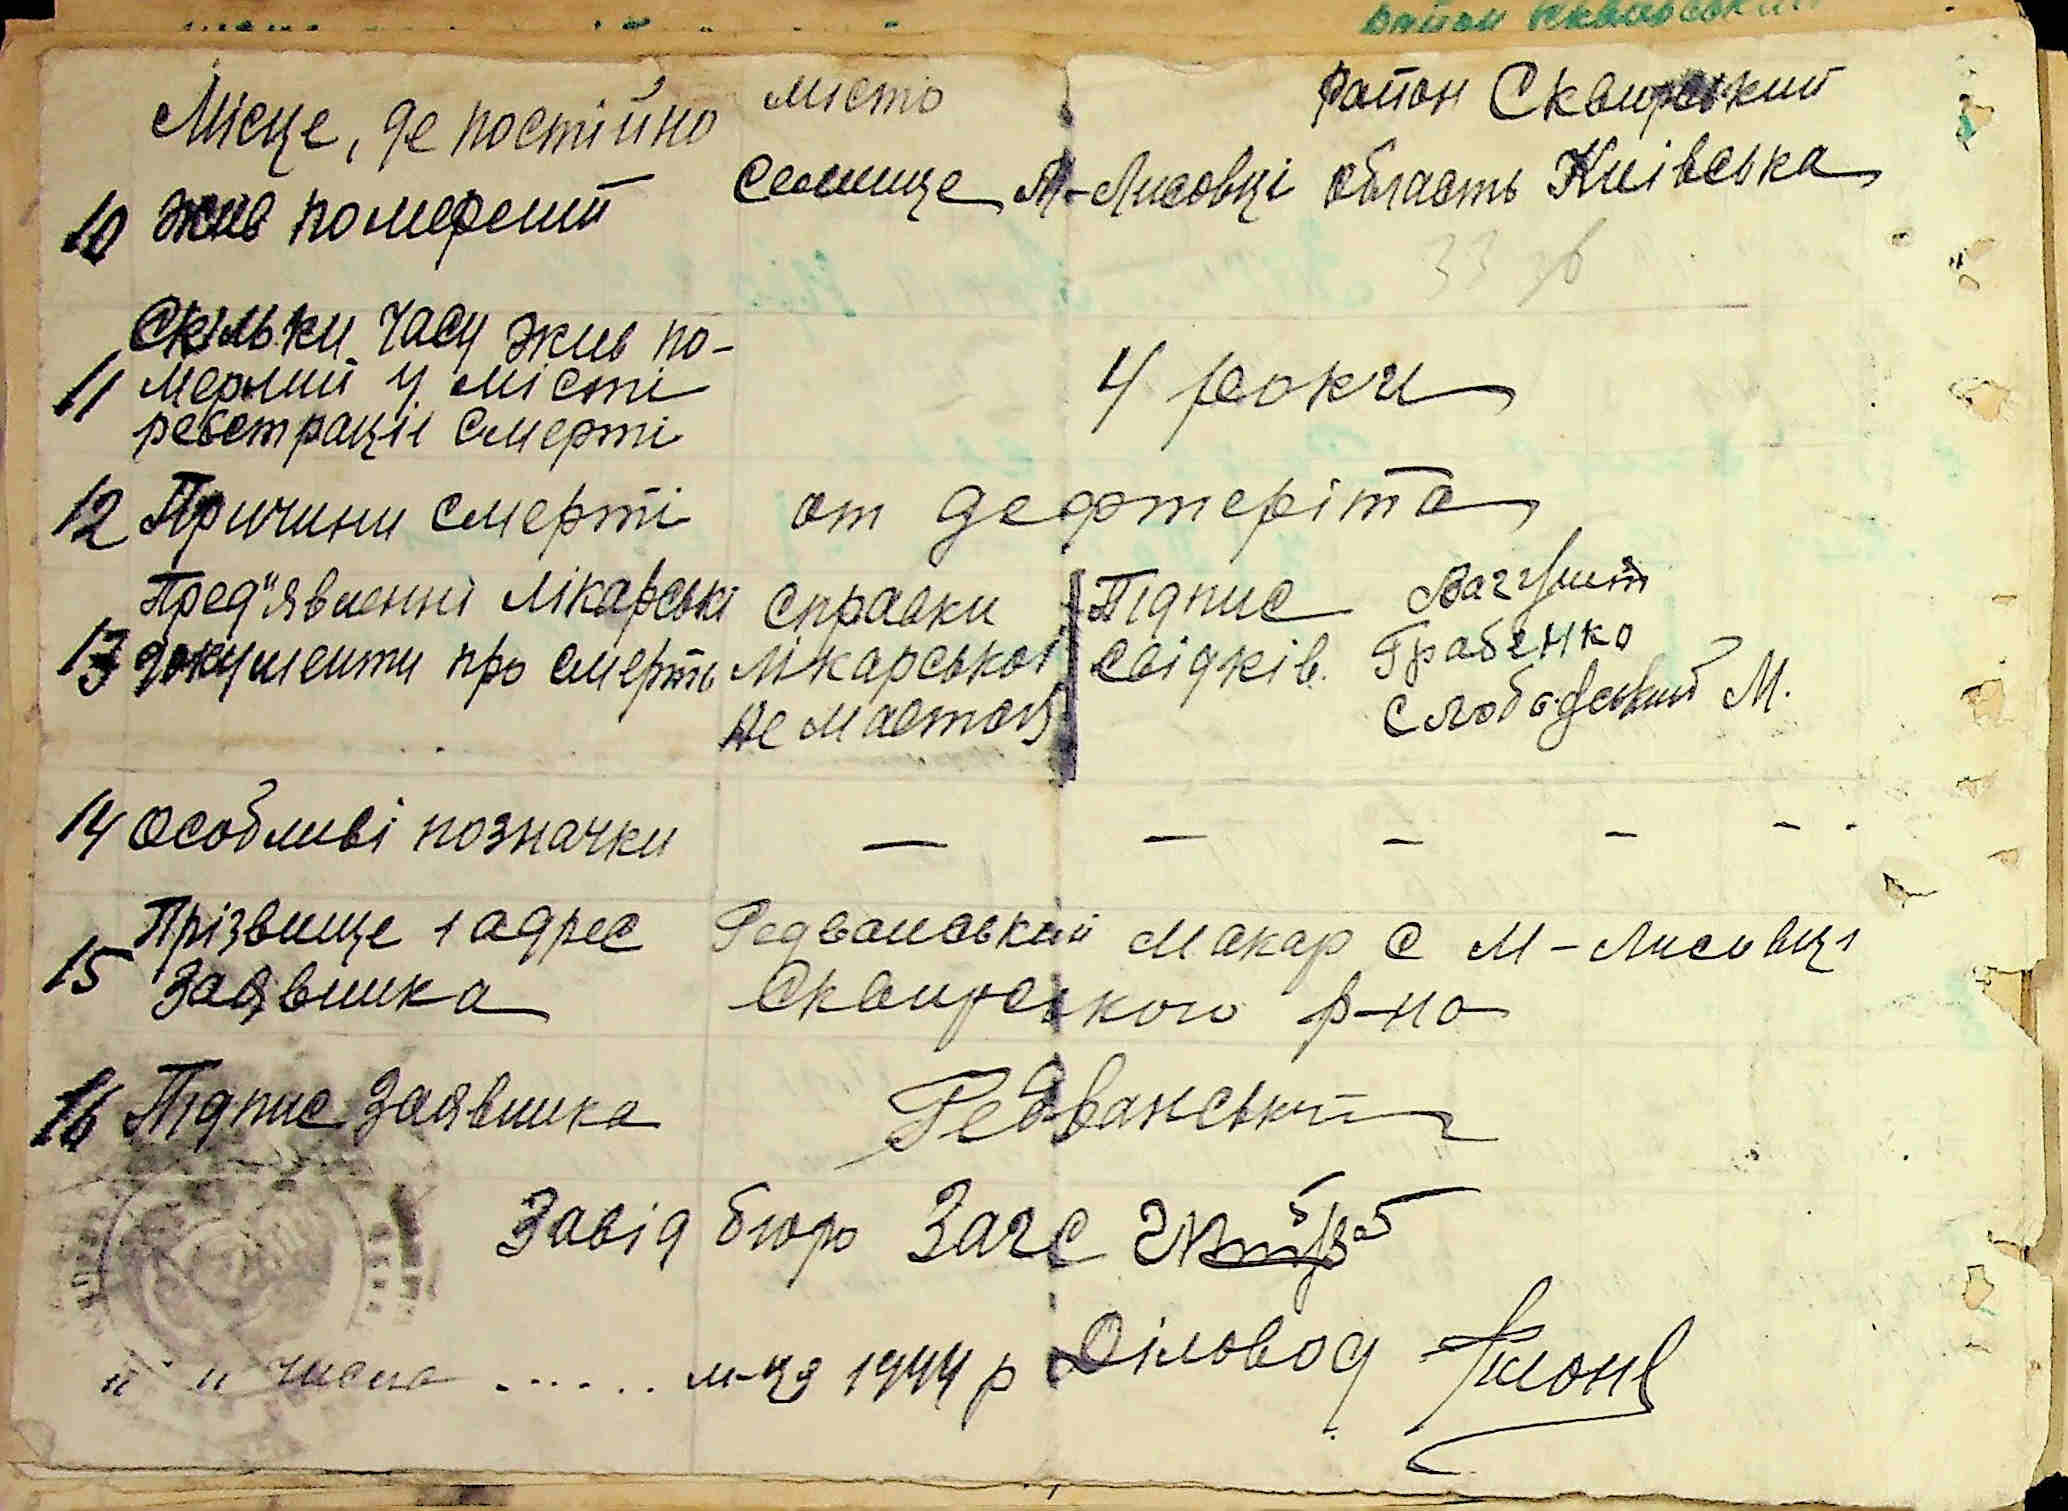 район Сквирський
Місце, де постійно місто район Сквирський
10 жив померший селище М-Лисовці область Київська
33 зв
Скільки часу жив по-
11 мерлий у місті 4 роки
реєстрації смерті
12 Причини смерті от дефтеріта
Пред"явленні лікарські справки Підпис
13 документи про смерть лікарської свідків. Грабенко
не маеться Слободський М.
14 Особливі позначки — — — — —
Прізвище і адрес Редванський Макар с М-Лисовці
15 Заявника Сквирського р-на
16 Підпис Заявника Редванський
Завід бюро Загс
" " числа ...... м-ця 1944 р Діловод